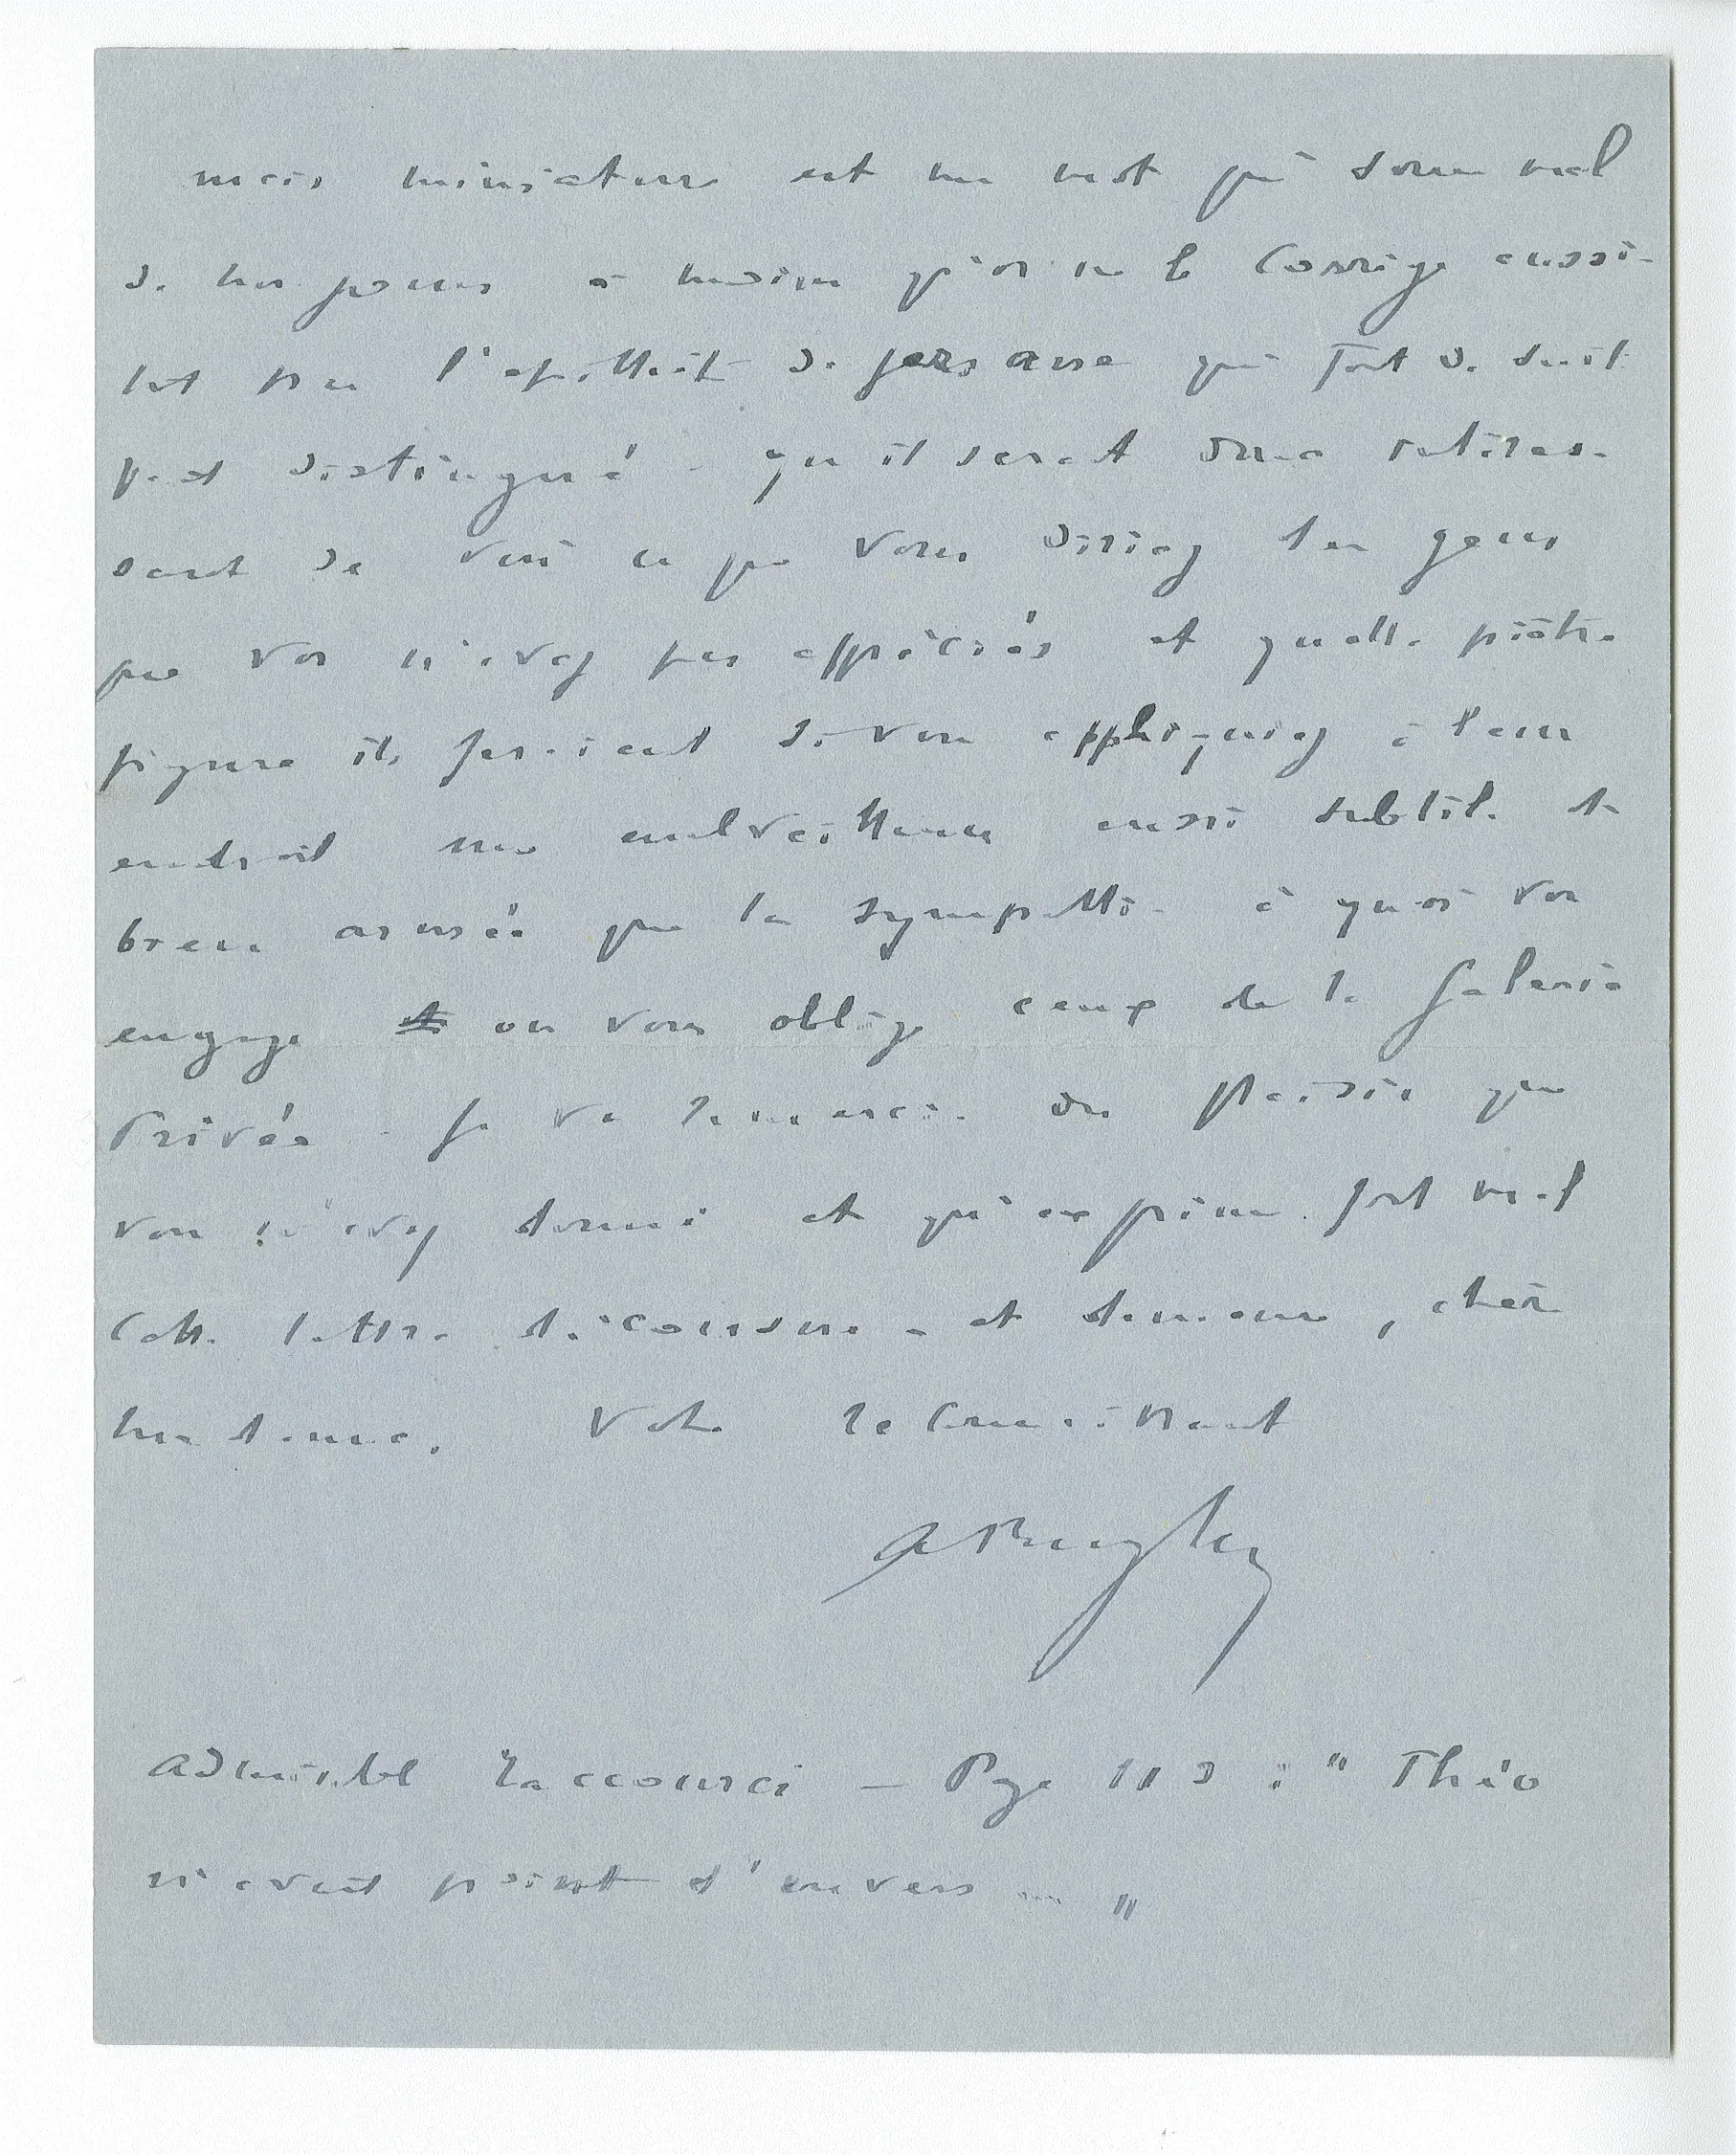 mais miniature est un mot qui sonne mal
de nos jours à moins qu'on ne le corrige aussi-
tôt par l'épithète de persane qui tout de suite
fait distingué - qu'il serait donc intéres-
sant de voir ce que vous diriez des gens
que vous n'avez pas appréciés et quelle piètre
figure ils feraient si vous appliquiez à leur
endroit une malveillance aussi subtile et
bien armée que la sympathie à quoi vous
engage ou vous oblige ceux de la Galerie
Privée - Je vous remercie du plaisir que
vous m'avez donné et qu'exprime fort mal
cette lettre décousue - et demeure, chère
madame, Votre reconnaissant
Admirable raccourci — Page 113 : " Théo
n'avait point d'envers ... "